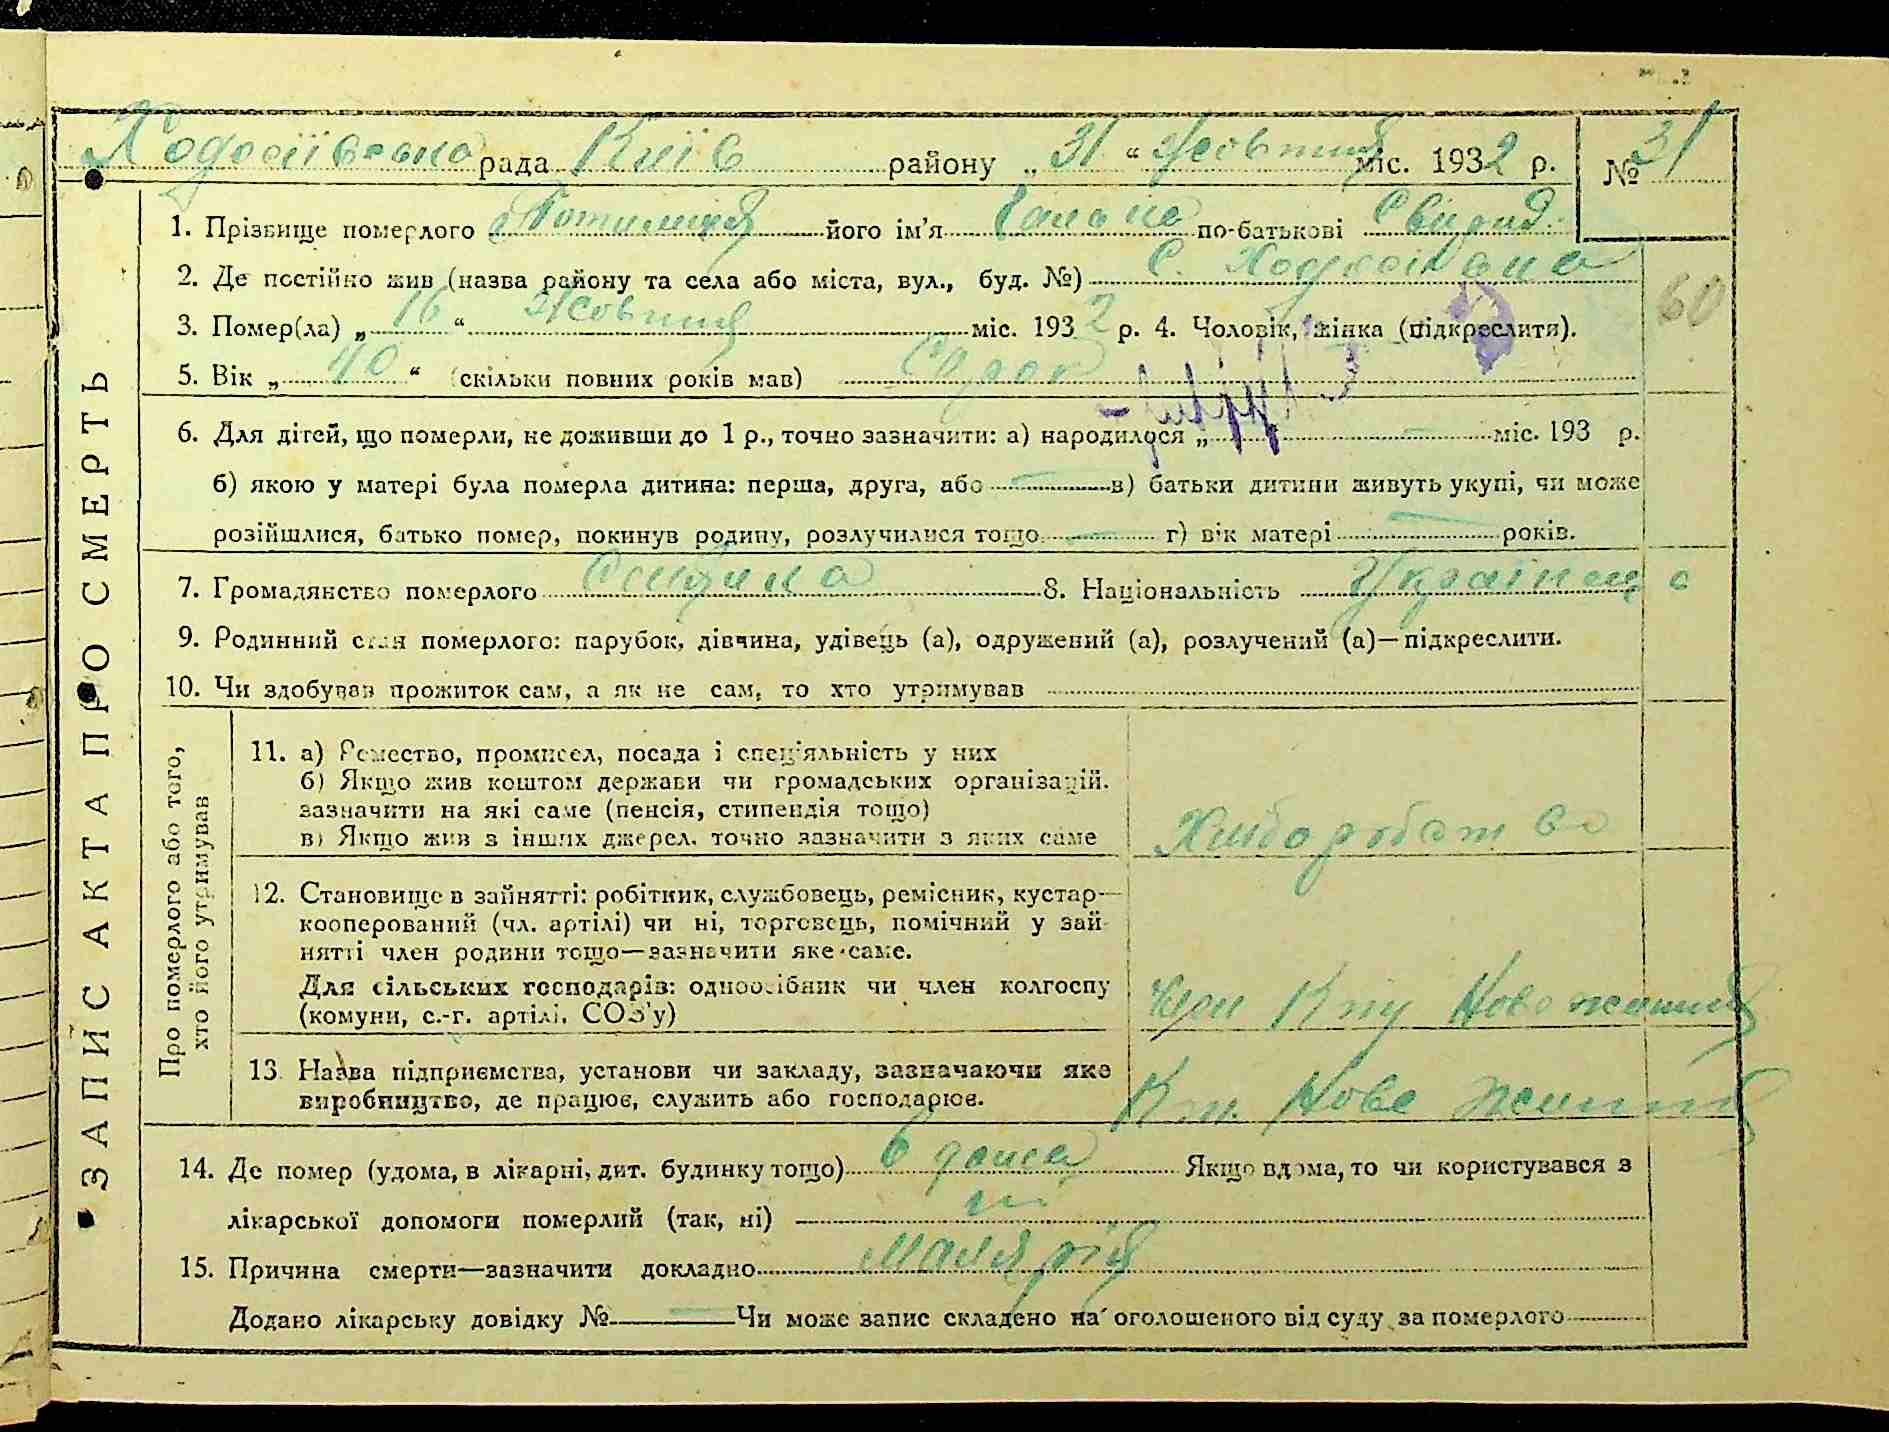 Ходосіївська рада Київ району „31“ Жовтня міс. 1932 р. № 31
1. Прізвище померлого його ім'я по-батькові Свирид.
2. Де постійно жив (назва району та села або міста, вул., буд. №) С. Ходосіївка
3. Помер(ла) „16“ Жовтня міс. 1932 р. 4. Чоловік, жінка (підкреслити).
60
5. Вік „40“ (скільки повних років мав) Сорок
6. Для дітей, що померли, не доживши до 1 р., точно зазначити: а) народилося „ міс. 193 р.
б) якою у матері була померла дитина: перша, друга, або — в) батьки дитини живуть укупі, чи може
розійшлися, батько помер, покинув родину, розлучилися тощо — г) вік матері — років.
7. Громадянство померлого 8. Національність Українка
9. Родинний стан померлого: парубок, дівчина, удівець (а), одружений (а), розлучений (а)—підкреслити.
10. Чи здобував прожиток сам, а як не сам, то хто утримував
ЗАПИС АКТА ПРО СМЕРТЬ
Про померлого або того,
хто його утримував
11. а) Ремество, промисел, посада і спеціяльність у них
б) Якщо жив коштом держави чи громадських організацій.
зазначити на які саме (пенсія, стипендія тощо)
в) Якщо жив з інших джерел. точно зазначити з яких саме
Хліборобство
12. Становище в зайнятті: робітник, службовець, ремісник, кустар—
кооперований (чл. артілі) чи ні, торговець, помічний у зай-
нятті член родини тощо—зазначити яке саме.
Для сільських господарів: одноосібник чи член колгоспу
(комуни, с.-г. артілі, СОЗ'у)
Член Нове життя
13. Назва підприємства, установи чи закладу, зазначаючи яке
виробництво, де працює, служить або господарює.
Нове життя
14. Де помер (удома, в лікарні, дит. будинку тощо) в дома Якщо вдома, то чи користувався з
лікарської допомоги померлий (так, ні) ні
15. Причина смерти—зазначити докладно Малярія
Додано лікарську довідку № — Чи може запис складено на оголошеного від суду за померлого